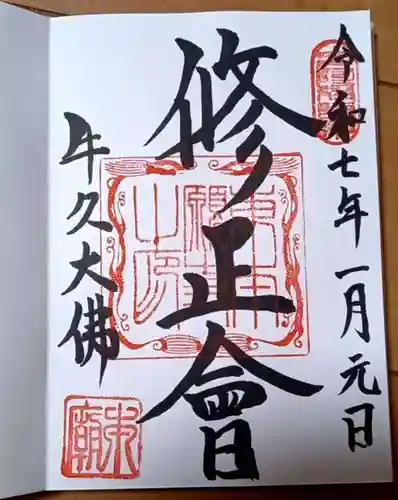 令和七年一月元日
修正會
牛久大佛
東本願寺之印